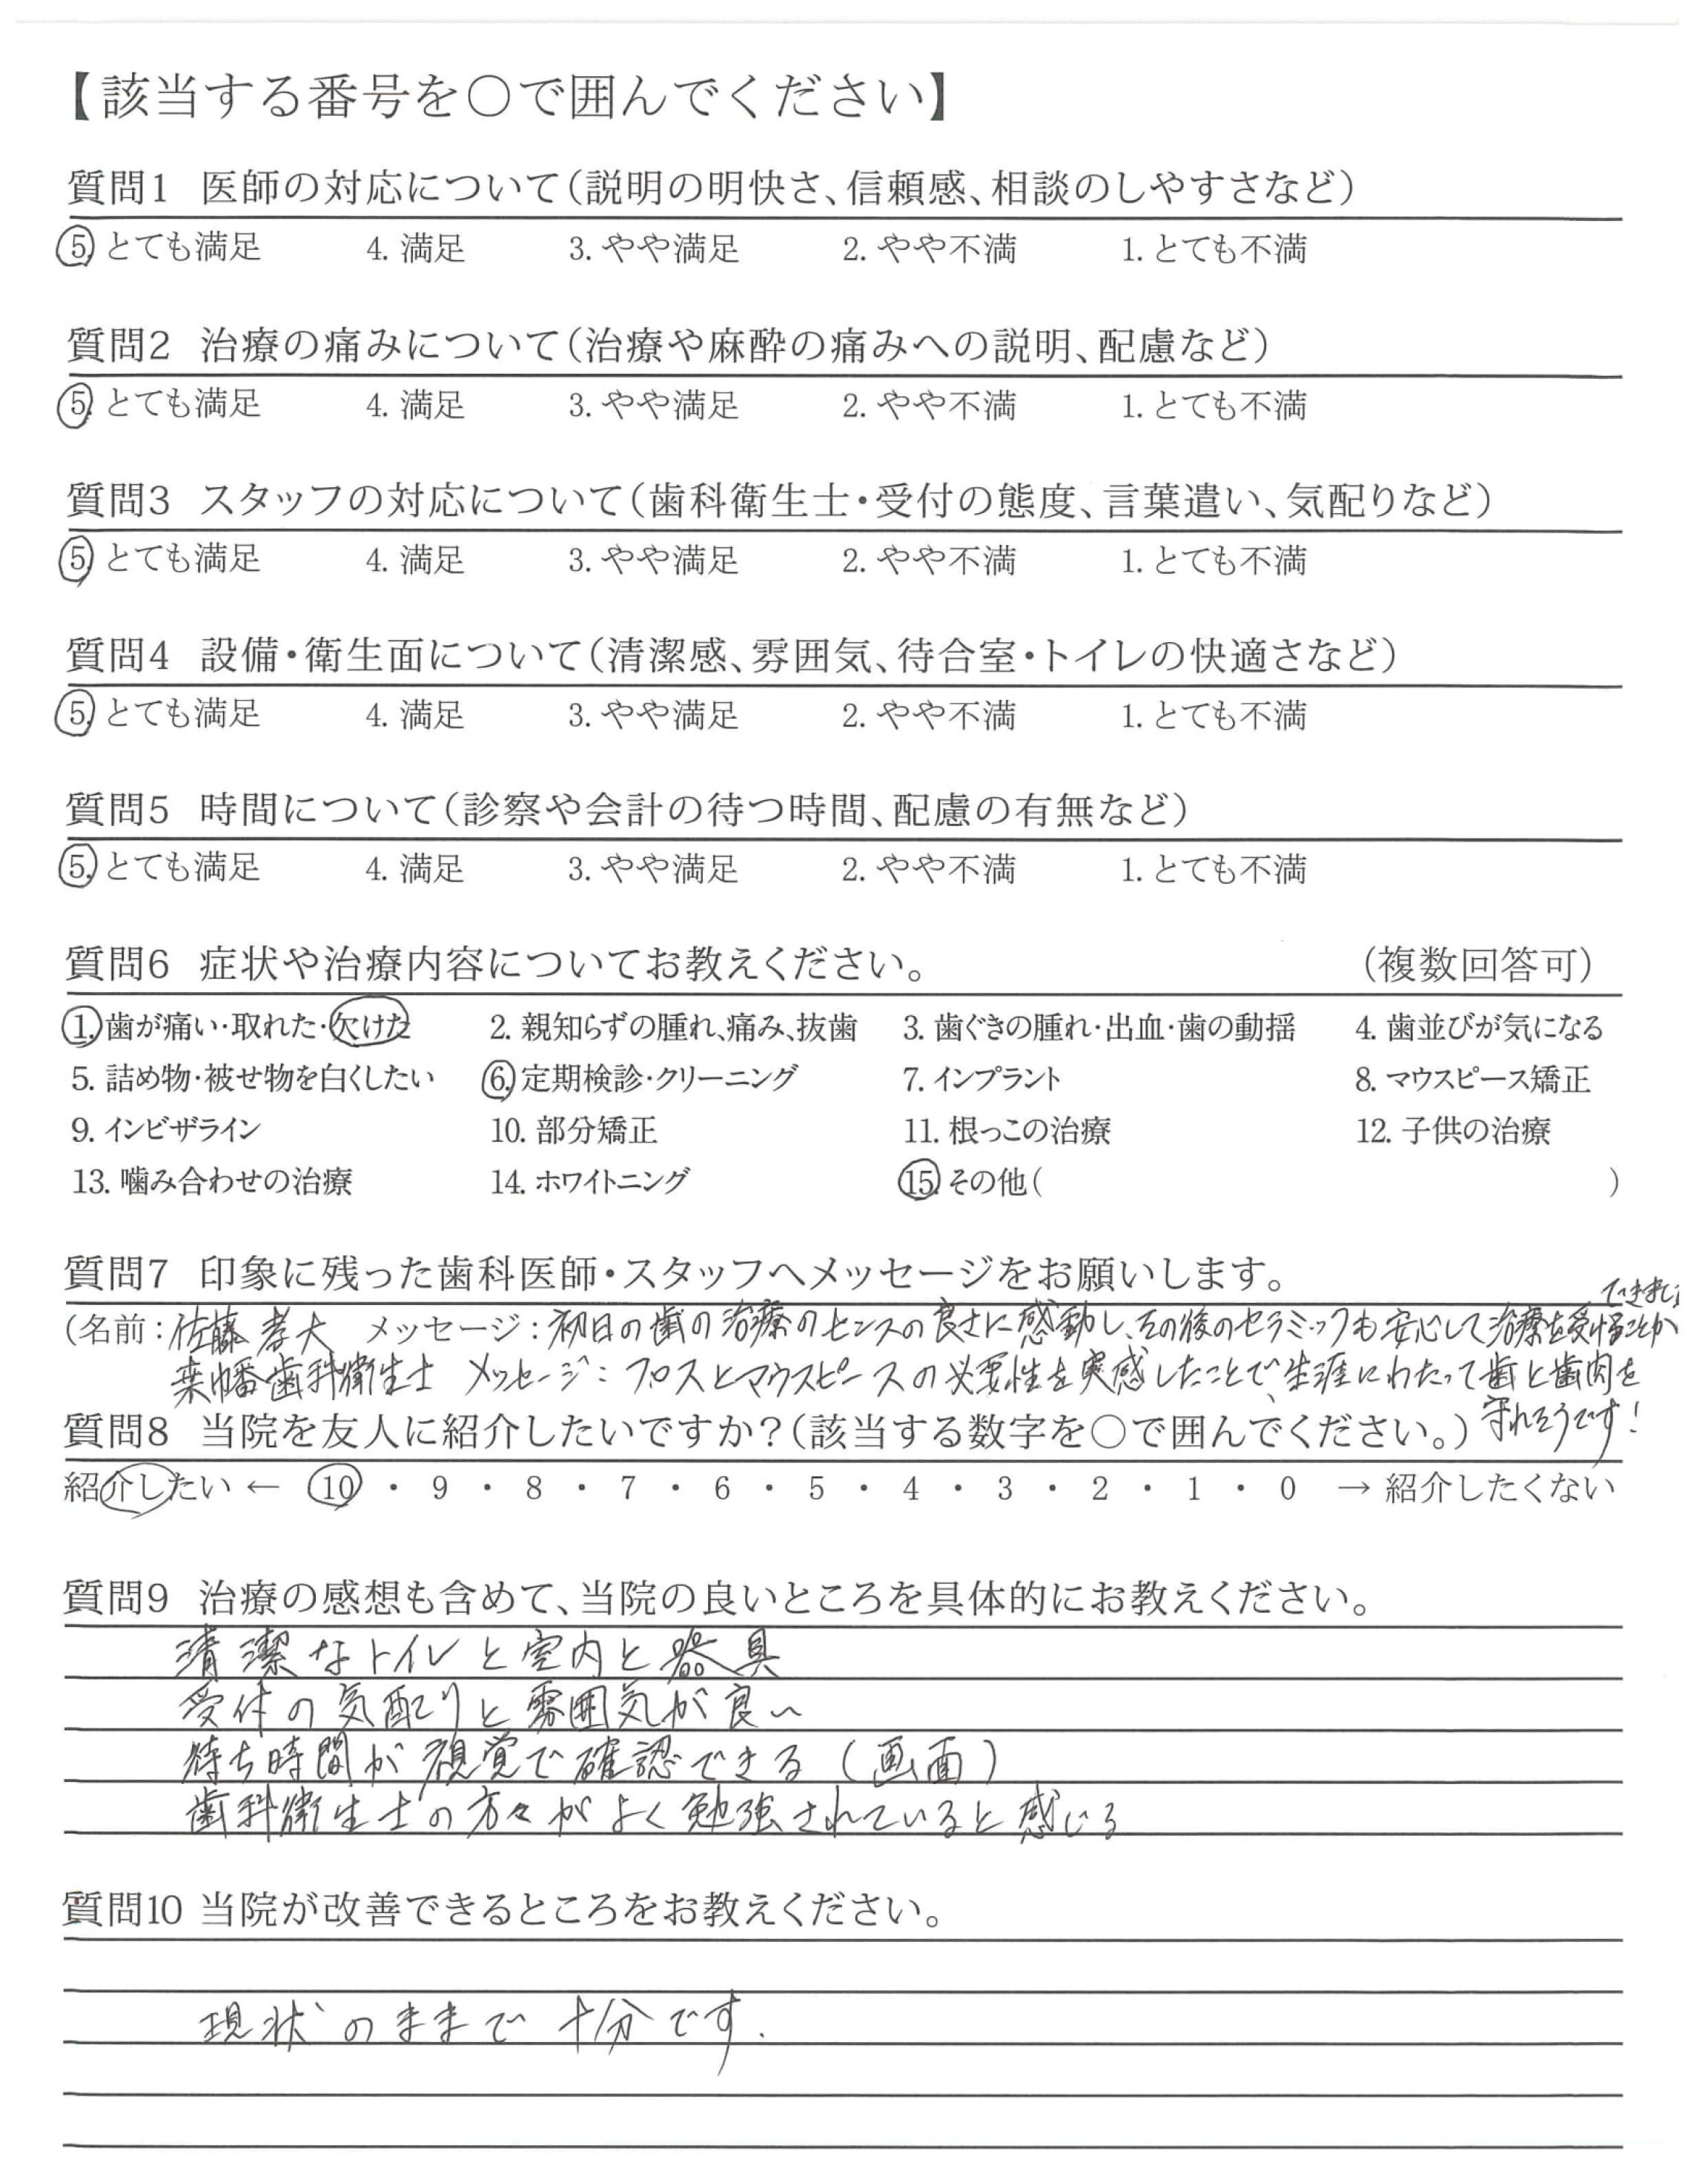 【該当する番号を○で囲んでください】
質問1 医師の対応について(説明の明快さ、信頼感、相談のしやすさなど)
5. とても満足 4. 満足 3. やや満足 2. やや不満 1. とても不満
質問2 治療の痛みについて(治療や麻酔の痛みへの説明、配慮など)
5. とても満足 4. 満足 3. やや満足 2. やや不満 1. とても不満
質問3 スタッフの対応について(歯科衛生士・受付の態度、言葉遣い、気配りなど)
5. とても満足 4. 満足 3. やや満足 2. やや不満 1. とても不満
質問4 設備・衛生面について(清潔感、雰囲気、待合室・トイレの快適さなど)
5. とても満足 4. 満足 3. やや満足 2. やや不満 1. とても不満
質問5 時間について(診察や会計の待つ時間、配慮の有無など)
5. とても満足 4. 満足 3. やや満足 2. やや不満 1. とても不満
質問6 症状や治療内容についてお教えください。 (複数回答可)
1. 歯が痛い・取れた・欠けた 2. 親知らずの腫れ、痛み、抜歯 3. 歯ぐきの腫れ・出血・歯の動揺 4. 歯並びが気になる
5. 詰め物・被せ物を白くしたい 6. 定期検診・クリーニング 7. インプラント 8. マウスピース矯正
9. インビザライン 10. 部分矯正 11. 根っこの治療 12. 子供の治療
13. 噛み合わせの治療 14. ホワイトニング 15. その他( )
質問7 印象に残った歯科医師・スタッフへメッセージをお願いします。
(名前:佐藤 孝大 メッセージ:初日の歯の治療のセンスの良さに感動し、その後のセラミックも安心して治療を受けることが
できまし
歯科衛生士 メッセージ:フロスとマウスピースの必要性を実感したことで、生涯にわたって歯と歯肉を
守れそうです!
質問8 当院を友人に紹介したいですか?(該当する数字を○で囲んでください。)
紹介したい ← 10 ・ 9 ・ 8 ・ 7 ・ 6 ・ 5 ・ 4 ・ 3 ・ 2 ・ 1 ・ 0 → 紹介したくない
質問9 治療の感想も含めて、当院の良いところを具体的にお教えください。
清潔なトイレと室内と器具
受付の気配りと雰囲気が良い
待ち時間が視覚で確認できる(画面)
歯科衛生士の方々がよく勉強されていると感じる
質問10 当院が改善できるところをお教えください。
現状のままで十分です.